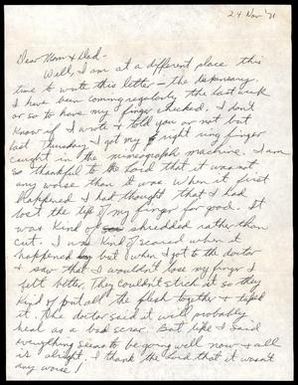 24 Nov '71
Dear Mom & Dad-
Well, I am at a different place this
time to write this letter - the dispensary.
I have been coming regularly the last week
or so to have my finger checked. I don't
know if I wrote & told you or not but
last Tuesday I got my right ring finger
caught in the mimeograph machine. I am
so thankful to the Lord that it wasn't
any worse than it was. When it first
happened I had thought that I had
lost the tip of my finger for good. It
was kind of shredded rather than
cut. I was kind of scared when it
happened but when I got to the doctor
& saw that I wouldn't lose my finger I
felt better. They couldn't stitch it so they
kind of put all the flesh together & taped
it. The doctor said it will probably
heal as a bad scar. But like I said
everything seems to be going well now & all
is alright. I thank the Lord that it wasn't
any worse!